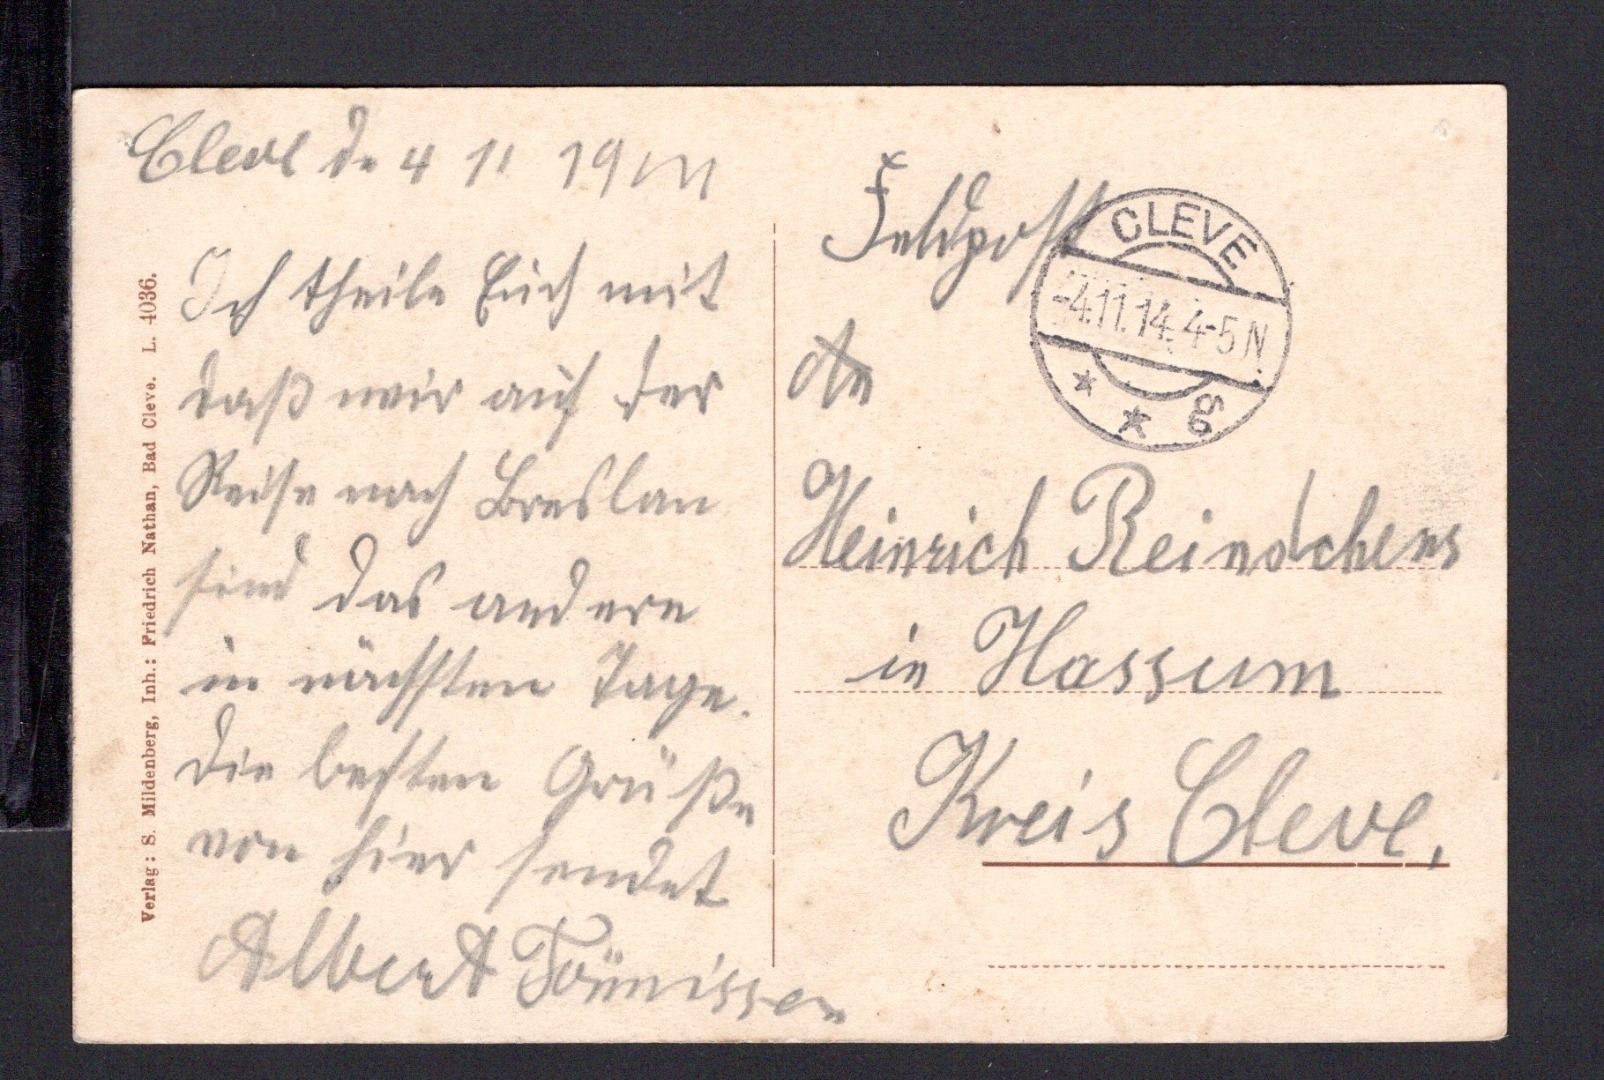 Cleve de 4 11 19
Ich theile Euch mit
daß wir auf der
Reise nach Breslau
sind das andere
in nächsten Tage.
Die besten Grüße
von hier sendet
Albert Tönnissen
Feldpost
An
Heinrich
in Hassum
Kreis Cleve.
CLEVE
-4.11.14. 4-5 N
* *
Verlag: S. Mildenberg, Inh.: Friedrich Nathan, Bad Cleve. L. 4036.